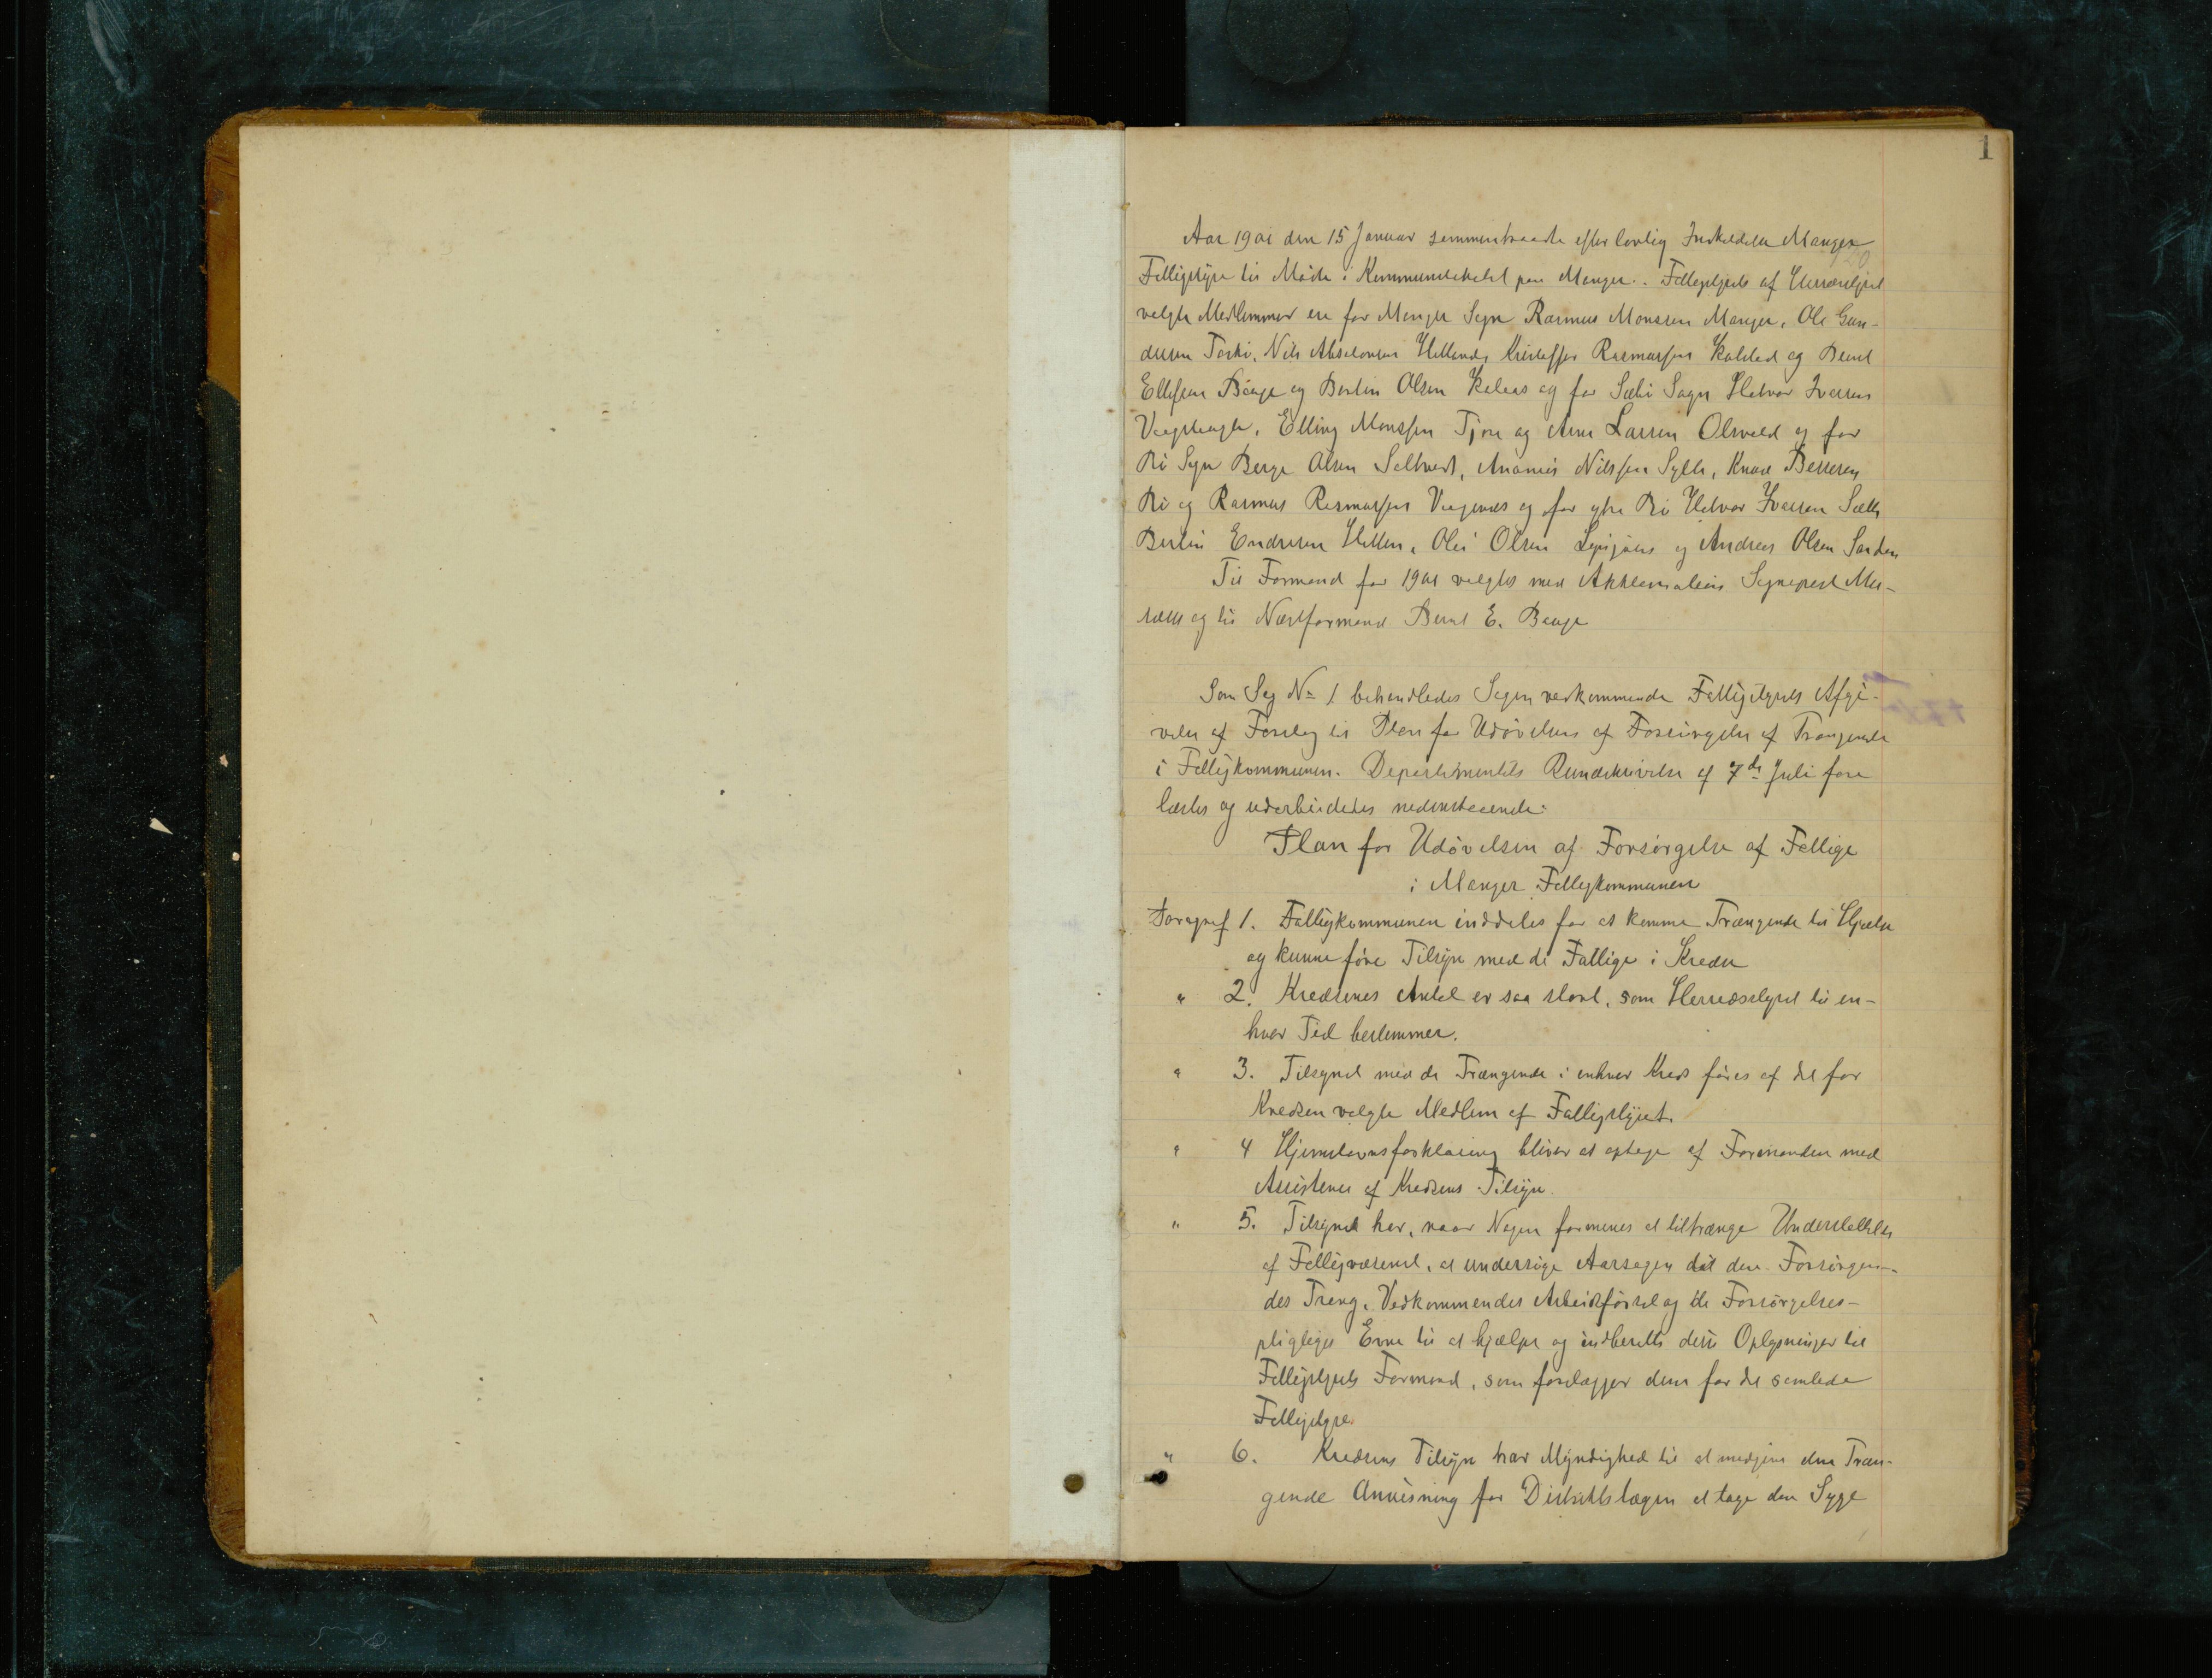 1
Aar 1901 den 15 Januar sammentraadte efter lovlig Indkaldelse Manger
Fattigstyre til Møde i Kommunelokalet paa Manger. Fattigstyrets af Herredsstyret
valgte Medlemmer ere for Manger Sogn Rasmus Monssen Manger, Ole Gun-
dersen Toska, Nils Absalonsen Helland, Kristoffer Rasmussen Kolstad og Bernt
Ellefsen Bauge og Bertin Olsen Kaleas og for Sæbø Sogn Halvor Iversen
Elling Monssen Tjore og Arne Larsen Olsvold og for
Bø Sogn Berge Olsen Saltvedt, Ananias Nilssen Sylta, Knut Bessesen
Bø og Rasmus Rasmussen Vaagenes og for ytre Bø Halvor Iversen Sætle
Bertin Endresen Hellen, Ole Olsen og Andreas Olsen Sanden
Til Formand for 1901 valgtes med Akklamation Sogneprest
og til Næstformand Bernt E. Bauge
Som Sag No 1 behandledes Sagen vedkommende Fattigstyrets Afgi-
velse af Forslag til Plan for Udøvelsen af Forsørgelse af Trængende
i Fattigkommunen. Departementets Rundskrivelse af 7de Juli fore
læstes og udarbeidedes nedenstaaende:
Plan for Udøvelsen af Forsørgelse af Fattige
i Manger Fattigkommunen
Paragraf 1. Fattigkommunen inddeles for at komme Trængende til Hjælp
og kunne føre Tilsyn med de Fattige i Kredse
" 2. Kredsenes Antal er saa stort, som Herredsstyret til en-
hver Tid bestemmer.
" 3. Tilsynet med de Trængende i enhver Kreds føres af det for
Kredsen valgte Medlem af Fattigstyret.
" 4 Hjemstavnsforklaring bliver at optage af Formanden med
Assistence af Kredsens Tilsyn.
" 5. Tilsynet har, naar Nogen formenes at tiltrænge Understøttelse
af Fattigvæsenet, at undersøge Aarsagen til den Forsørgen-
des Trang, Vedkommendes Arbeidsførsel og de Forsørgelses-
pligtiges Evne til at hjælpe og indberette disse Oplysninger til
Fattigstyrets Formand, som forelægger dem for det samlede
Fattigstyre.
" 6. Kredsens Tilsyn har Myndighed til at medgive den Træn-
gende Anvisning for Distriktslægen at tage den Syge